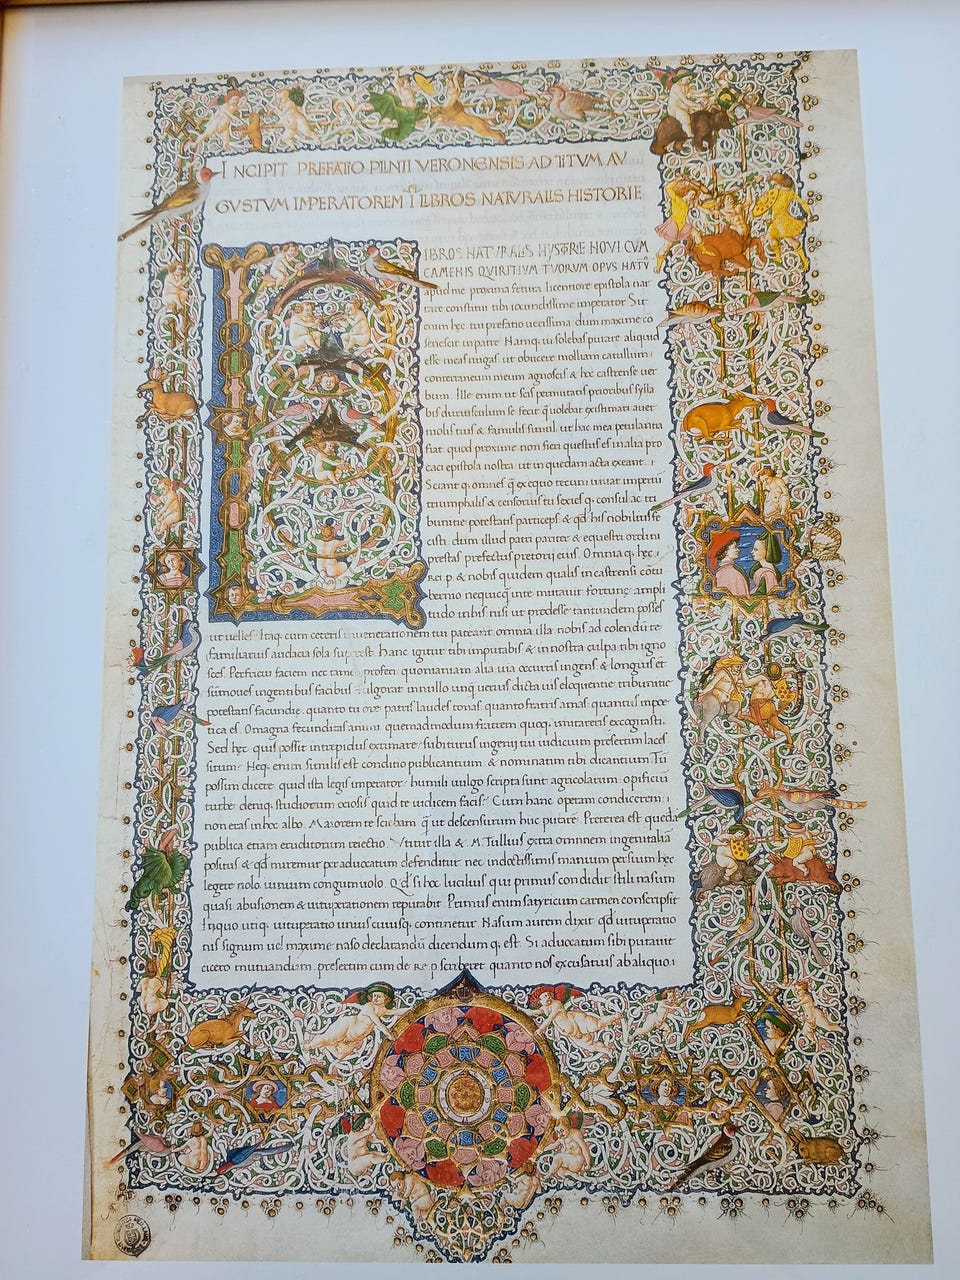 INCIPIT PREFATIO PLINII VERONENSIS AD TITUM AU
GUSTUM IMPERATOREM I LIBROS NATURALIS HISTORIE
LIBROS NATURALIS HYSTORIE NOVI CUM
CAMENIS QUIRITIUM TUORUM OPUS NATU
apud me proxima fetura licentiore epistola nar
rare constitui tibi iocundissime imperator Sit
enim hec tui prefatio uerissima dum maximo co
senescit in patre Namq; tu solebas putare aliquid
esse meas nugas ut obicere molliam catullum
conterraneum meum agnoscis & hoc castrense uer
bum. Ille enim ut scis permutatis prioribus sylla
bis duriusculum se fecit q̄ uolebat existimari a uer
nolis tuis & famulis simul ut hac mea petulantia
fiat quod proxime non fieri questus es in alia pro
caci epistola nostra ut in quedam acta exeant.
Sciant q; omnes q̄ ex equo tecum uiuat imperiū
triumphalis & censorius tu sexies q; consul ac tri
bunitie potestatis particeps & qd his nobilius fe
cisti dum illud patri pariter & equestri ordini
prestas prefectus pretorii eius. Omnia q; hec
rei p. & nobis quidem qualis in castrensi cōtu
bernio nequicq̄ in te mutauit fortunę ampli
tudo in his nisi ut prodesse tantundem posses
ut uelles Itaq; cum ceteris in uenerationem tui pateant omnia illa nobis ad colendū te
familiarius audacia sola superest Hanc igitur tibi imputabis & in nostra culpa tibi igno
sces. Perfricui faciem nec tamen profeci quoniam alia uia occurris ingens & longius ēt
summoues ingentibus facibus fulgorat in nullo unq̄ uerius dicta uis eloquentie tribunitie
potestatis facundie. quanto tu ore patris laudes tonas. quanto fratris amas. quantus in poe
tica es. O magna fecunditas animi quemadmodum fratrem quoq; imitareris excogitasti.
Sed hęc quis possit intrepidus extimare subiturus ingenii tui iudicium presertim laces
situm. Neq; enim similis est conditio publicantium & nominatim tibi dicantium Tū
possim dicere quid ista legis imperator humili uulgo scripta sunt agricolarum opificū
turbe deniq; studiorum ociosis quid te iudicem facis? Cum hanc operam condicerem
non eras in hoc albo. Maiorem te sciebam q̄ ut descensurum huc putarē Preterea est quedā
publica etiam eruditorum reiectio. Vtitur illa & M. Tullius extra omnem ingenii alia
positus & qd miremur per aduocatum defenditur nec indoctissimis manium persium hęc
legere nolo iunium congum uolo. Qd si hoc lucilius qui primus condidit stili nasum
quasi abusionem & uituperationem reputabit Primus enim satyricum carmen conscripsit
In quo utiq; uituperatio unius cuiusq; continetur Nasum autem dixit qd uituperatio
nis signum uel maxime naso declarandū dicendum q; est. Si aduocatum sibi putauit
cicero mutuandum. presertim cum de re p. scriberet quanto nos excusatius ab aliquo